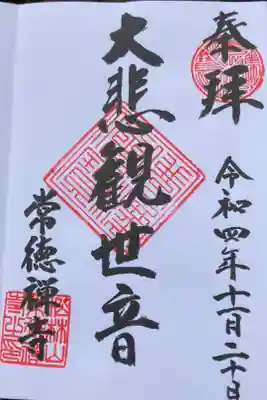 奉拝
令和四年十一月二十日
大悲観世音
常徳禅寺